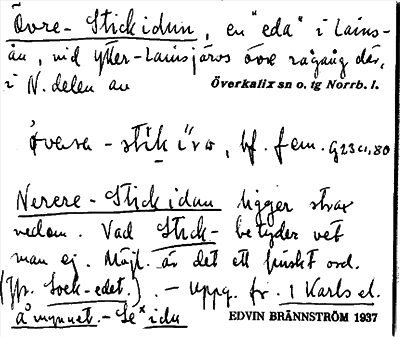 Övre-Stickidan, en "eda" i Lains-
ån, vid Ytter-Lainsjärvs övre rågång där,
i N. delen av Överkalix sn o. tg Norrb. l.
bf. fem.
Nerere-Stickidan ligger strax
nedom. Vad Stick- betyder vet
man ej. Möjl. är det ett finskt ord.
(Jfr. Sock-edet.). - Uppg. fr. 1 Karls el.
åmynnet.-Se idu EDVIN BRÄNNSTRÖM 1937